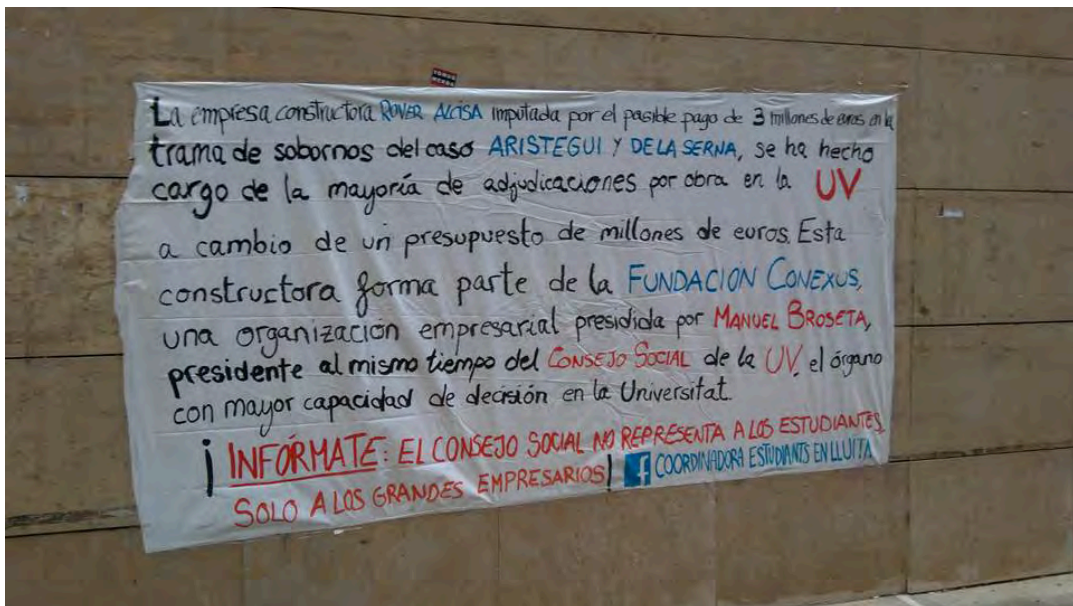 La empresa constructora ROVER ALCISA imputada por el pasible pago de 3 millones de euros en la
trama de sobornos del caso ARISTEGUI Y DE LA SERNA, se ha hecho
cargo de la mayoría de adjudicaciones por obra en la UV
a cambio de un presupuesto de millones de euros. Esta
constructora forma parte de la FUNDACIÓN CONEXUS,
una organización empresarial presidida por MANUEL BROSETA,
presidente al mismo tiempo del CONSEJO SOCIAL de la UV, el órgano
con mayor capacidad de decisión en la Universitat.
¡INFÓRMATE: EL CONSEJO SOCIAL NO REPRESENTA A LOS ESTUDIANTES,
SOLO A LOS GRANDES EMPRESARIOS! f COORDINADORA ESTUDIANTS EN LLUITA